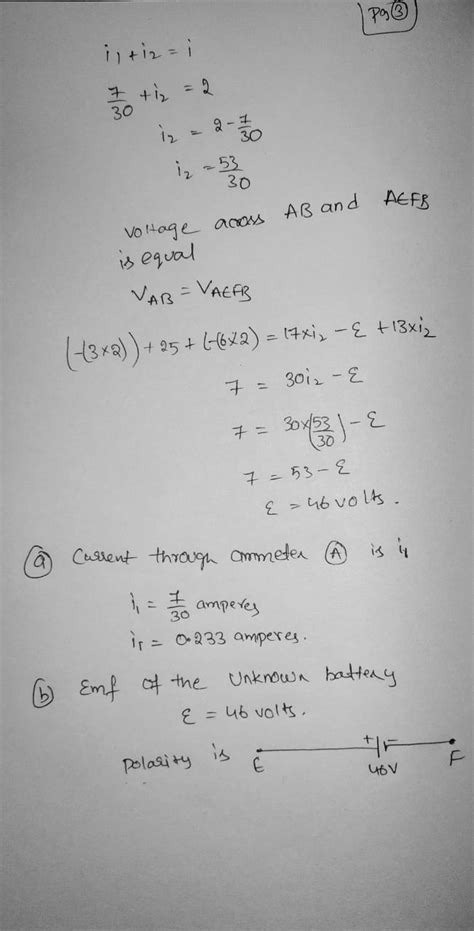 Pg ③
i₁ + i₂ = i
7/30 + i₂ = 2
i₂ = 2 - 7/30
i₂ = 53/30
voltage across AB and AEFB
is equal
V_AB = V_AEFB
(-(3×2)) + 25 + (-(6×2) = 17×i₂ - ε + 13×i₂
7 = 30i₂ - ε
7 = 30×(53/30) - ε
7 = 53 - ε
ε = 46 volts.
ⓐ Current through ammeter Ⓐ is i₁
i₁ = 7/30 amperes
i₁ = 0.233 amperes.
ⓑ Emf of the unknown battery
ε = 46 volts.
polarity is E + 46V F